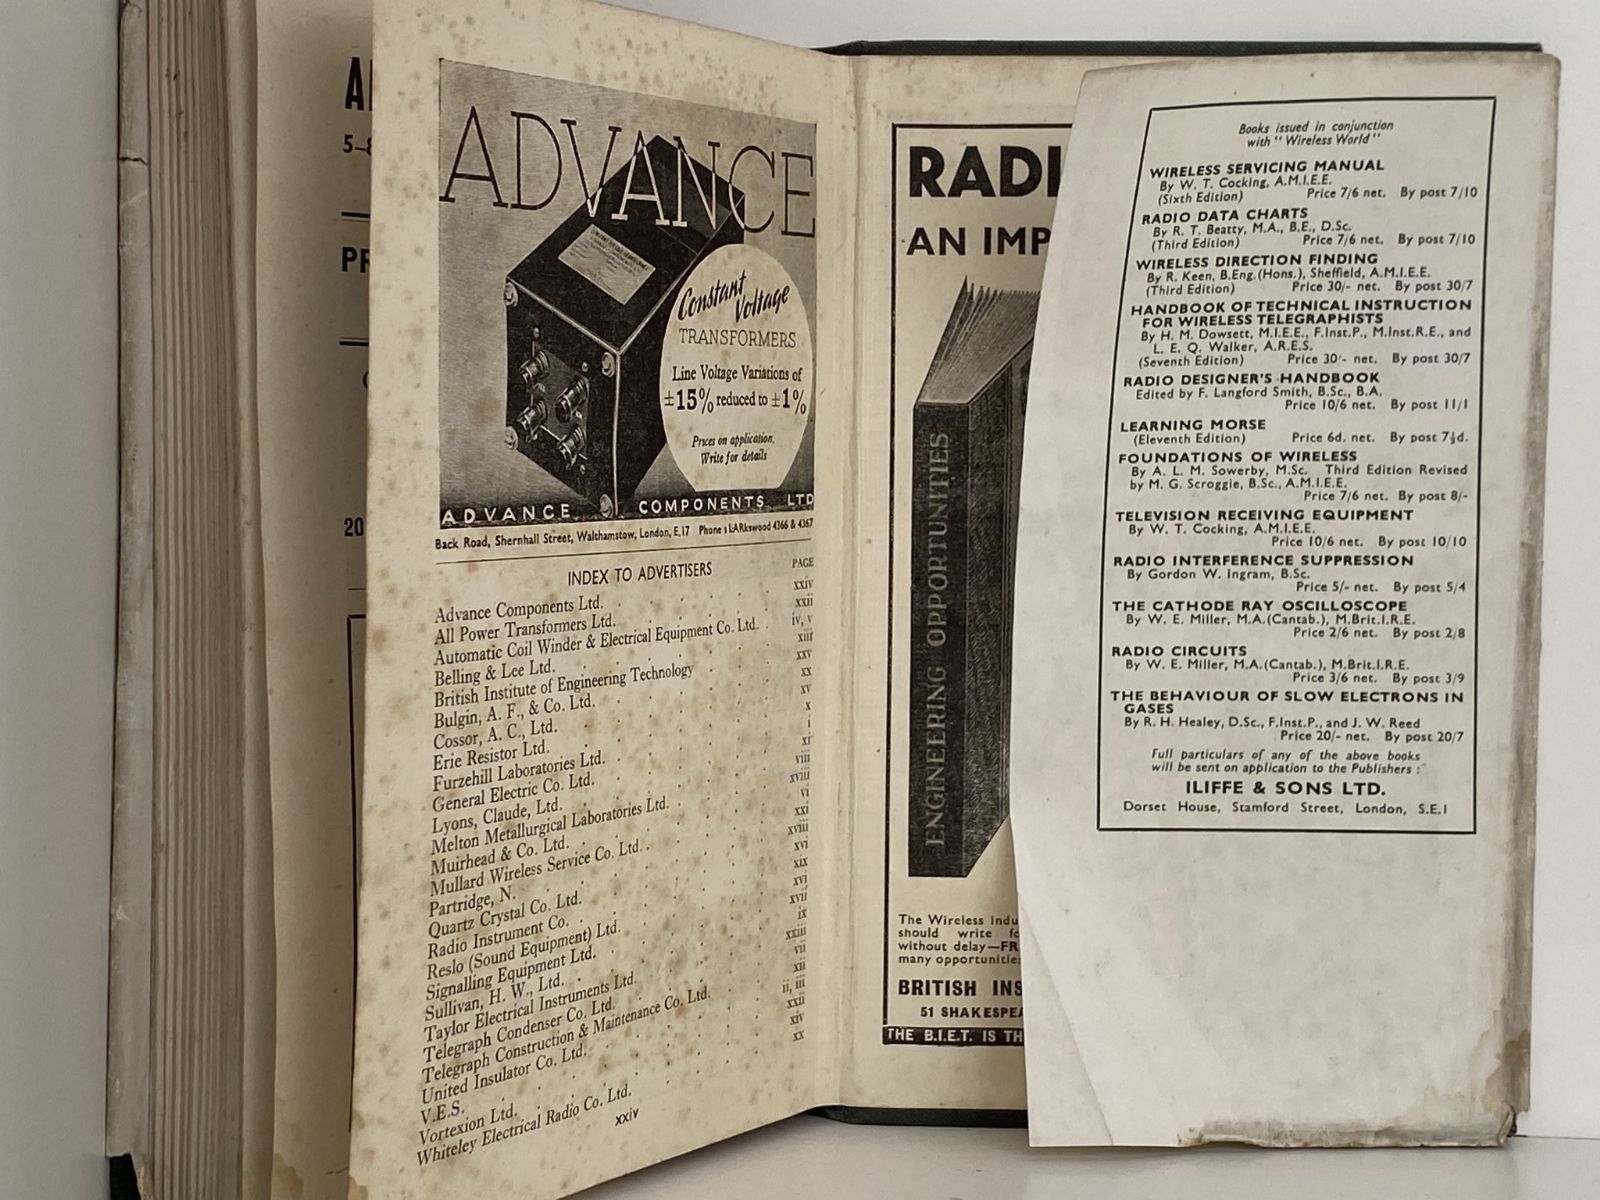 5-8
20
ADVANCE
Constant
Voltage
TRANSFORMERS
Line Voltage Variations of
±15% reduced to ±1%
Prices on application.
Write for details
ADVANCE COMPONENTS LTD
Back Road, Shernhall Street, Walthamstow, London, E.17 Phone : LARkswood 4366 & 4367
INDEX TO ADVERTISERS
PAGE
Advance Components Ltd. xxiv
All Power Transformers Ltd. xxii
Automatic Coil Winder & Electrical Equipment Co. Ltd. iv, v
Belling & Lee Ltd. xiii
British Institute of Engineering Technology xxv
Bulgin, A. F., & Co. Ltd. xx
Cossor, A. C., Ltd. xv
Erie Resistor Ltd. x
Furzehill Laboratories Ltd. i
General Electric Co. Ltd. xi
Lyons, Claude, Ltd. viii
Melton Metallurgical Laboratories Ltd. xviii
Muirhead & Co. Ltd. vi
Mullard Wireless Service Co. Ltd. xxi
Partridge, N. xviii
Quartz Crystal Co. Ltd. xvi
Radio Instrument Co. xix
Reslo (Sound Equipment) Ltd. xvi
Signalling Equipment Ltd. xvii
Sullivan, H. W., Ltd. ix
Taylor Electrical Instruments Ltd. xxiii
Telegraph Condenser Co. Ltd. vii
Telegraph Construction & Maintenance Co. Ltd. xii
United Insulator Co. Ltd. ii, iii
V.E.S. xxii
Vortexion Ltd. xiv
Whiteley Electrical Radio Co. Ltd. xx
xxiv
RADI
AN IMP
ENGINEERING OPPORTUNITIES
The Wireless indu
should write fo
without delay—FR
many opportunitie
BRITISH INS
51 SHAKESPEA
THE B.I.E.T. IS TH
Books issued in conjunction
with "Wireless World"
WIRELESS SERVICING MANUAL
By W. T. Cocking, A.M.I.E.E.
(Sixth Edition) Price 7/6 net. By post 7/10
RADIO DATA CHARTS
By R. T. Beatty, M.A., B.E., D.Sc.
(Third Edition) Price 7/6 net. By post 7/10
WIRELESS DIRECTION FINDING
By R. Keen, B.Eng.(Hons.), Sheffield, A.M.I.E.E.
(Third Edition) Price 30/- net. By post 30/7
HANDBOOK OF TECHNICAL INSTRUCTION
FOR WIRELESS TELEGRAPHISTS
By H. M. Dowsett, M.I.E.E., F.Inst.P., M.Inst.R.E., and
L. E. Q. Walker, A.R.E.S.
(Seventh Edition) Price 30/- net. By post 30/7
RADIO DESIGNER'S HANDBOOK
Edited by F. Langford Smith, B.Sc., B.A.
Price 10/6 net. By post 11/1
LEARNING MORSE
(Eleventh Edition) Price 6d. net. By post 7½d.
FOUNDATIONS OF WIRELESS
By A. L. M. Sowerby, M.Sc. Third Edition Revised
by M. G. Scroggie, B.Sc., A.M.I.E.E.
Price 7/6 net. By post 8/-
TELEVISION RECEIVING EQUIPMENT
By W. T. Cocking, A.M.I.E.E.
Price 10/6 net. By post 10/10
RADIO INTERFERENCE SUPPRESSION
By Gordon W. Ingram, B.Sc.
Price 5/- net. By post 5/4
THE CATHODE RAY OSCILLOSCOPE
By W. E. Miller, M.A.(Cantab.), M.Brit.I.R.E.
Price 2/6 net. By post 2/8
RADIO CIRCUITS
By W. E. Miller, M.A.(Cantab.), M.Brit.I.R.E.
Price 3/6 net. By post 3/9
THE BEHAVIOUR OF SLOW ELECTRONS IN
GASES
By R. H. Healey, D.Sc., F.Inst.P., and J. W. Reed
Price 20/- net. By post 20/7
Full particulars of any of the above books
will be sent on application to the Publishers :
ILIFFE & SONS LTD.
Dorset House, Stamford Street, London, S.E.1